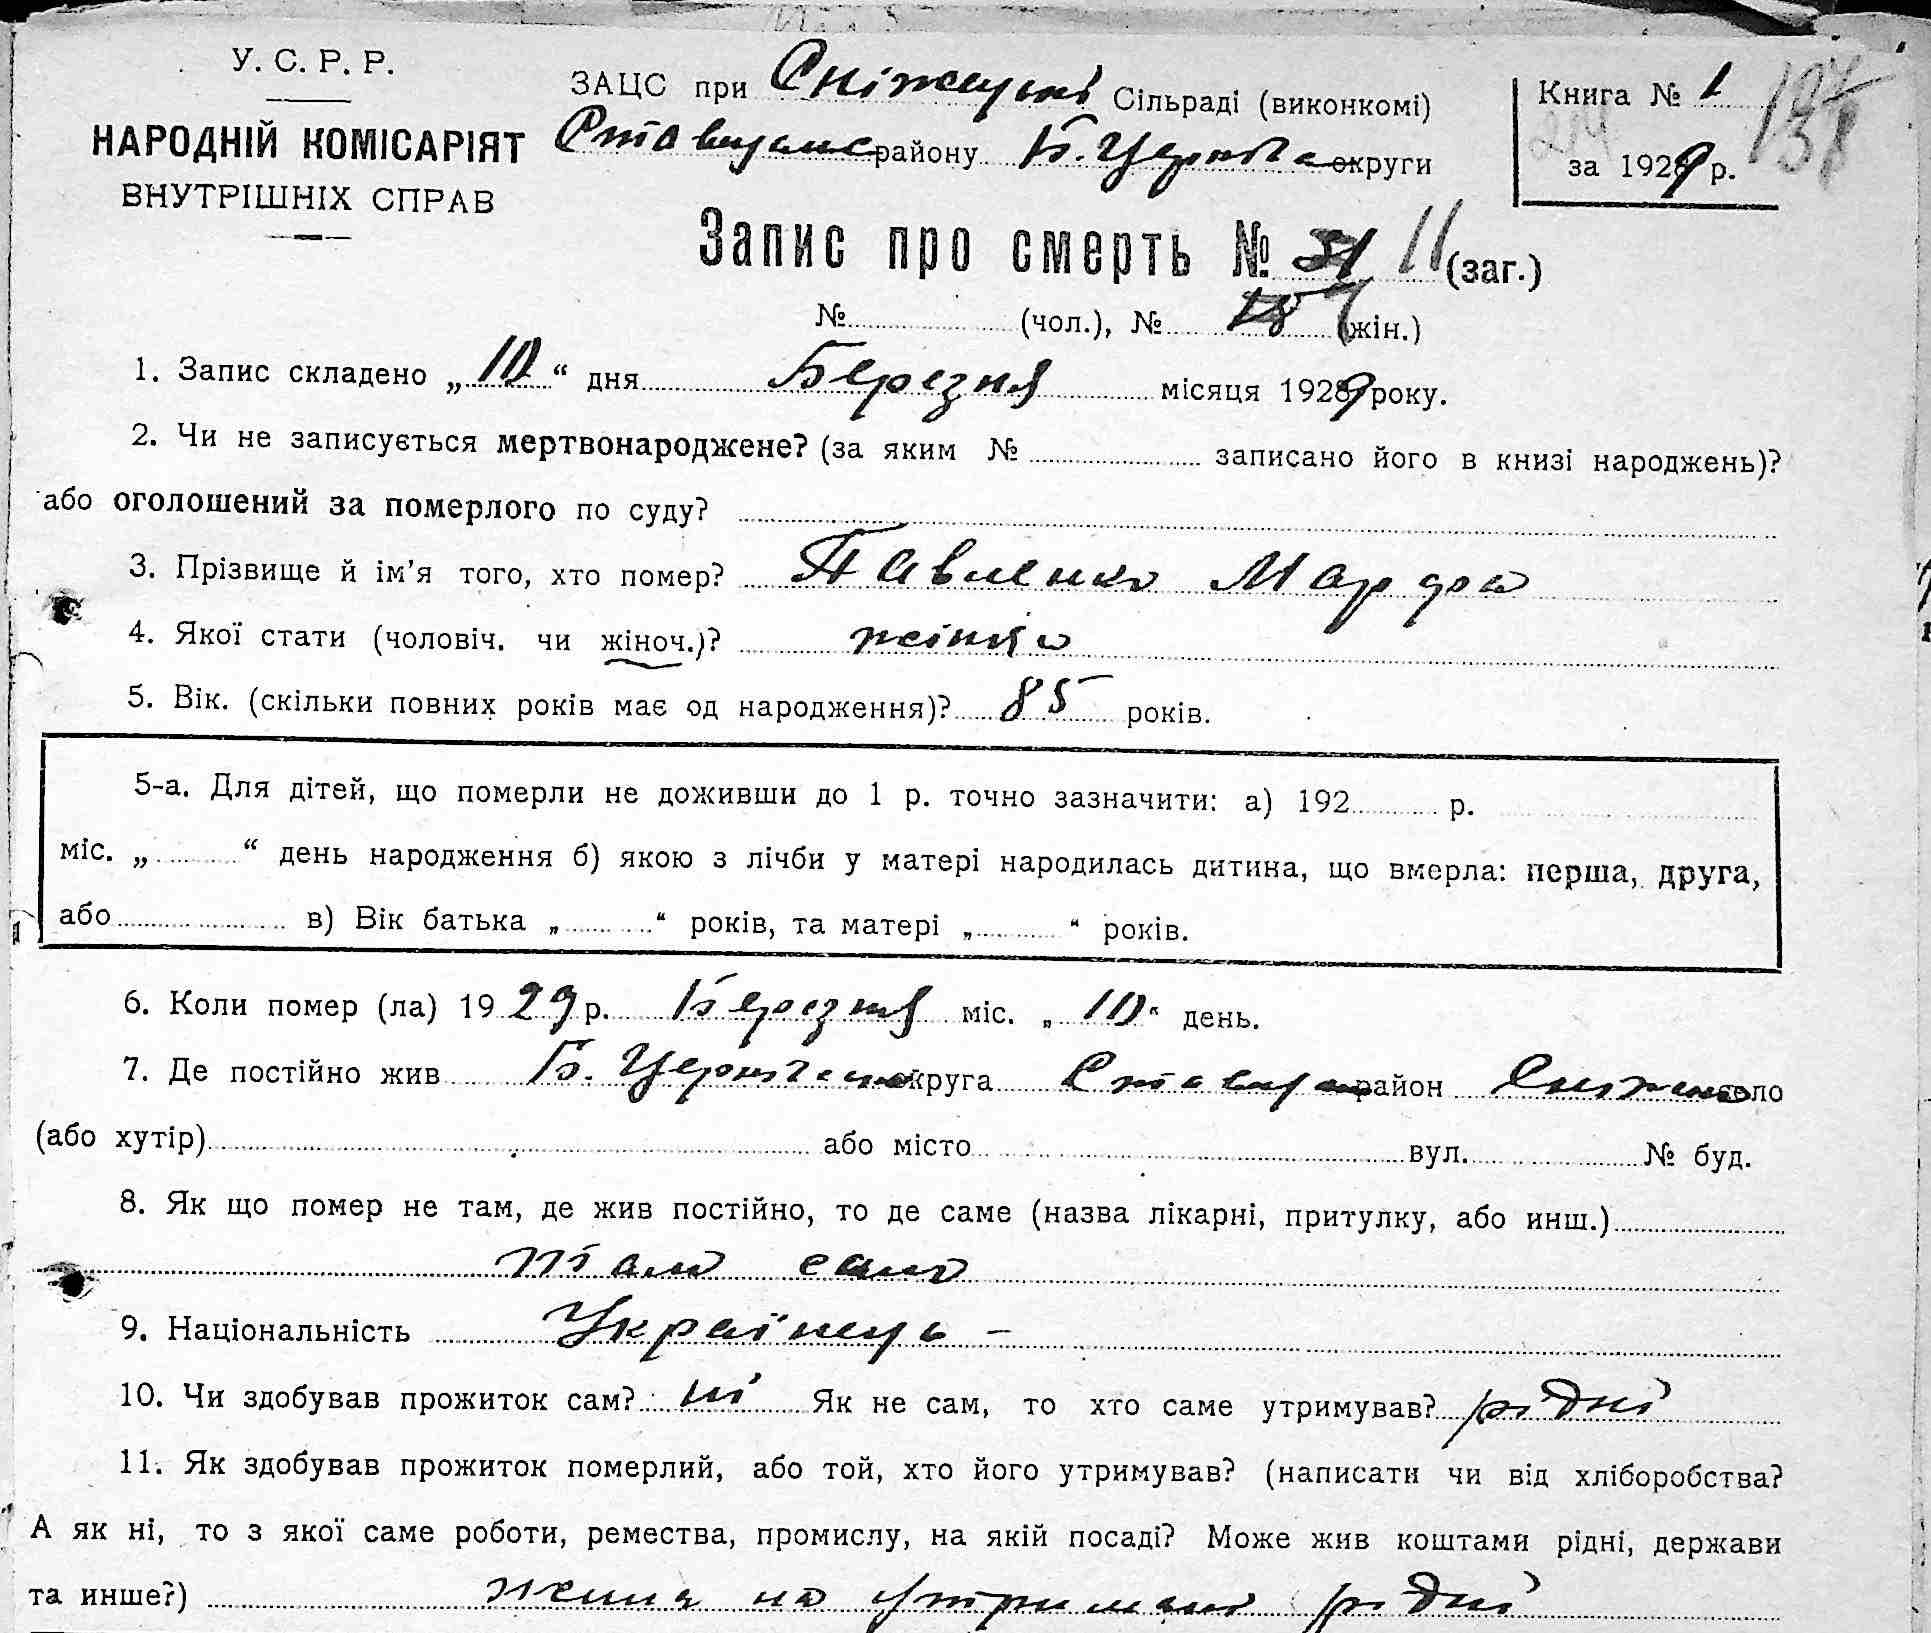 У. С. Р. Р.
НАРОДНІЙ КОМІСАРІЯТ
ВНУТРІШНІХ СПРАВ
ЗАЦС при Сніжецькі Сільраді (виконкомі)
Ставищанс району Б. Церківська округи
Книга № 1
за 1929 р.
Запис про смерть № 11 (заг.)
№ (чол.), № (жін.)
1. Запис складено „10“ дня Березня місяця 1929 року.
2. Чи не записується мертвонароджене? (за яким № записано його в книзі народжень)?
або оголошений за померлого по суду?
3. Прізвище й ім’я того, хто помер? Павленко Марфа
4. Якої стати (чоловіч. чи жіноч.)? жіноча
5. Вік. (скільки повних років має од народження)? 85 років.
5-а. Для дітей, що померли не доживши до 1 р. точно зазначити: а) 192 р.
міс. „ “ день народження б) якою з лічби у матері народилась дитина, що вмерла: перша, друга,
або в) Вік батька „ “ років, та матері „ “ років.
6. Коли помер (ла) 1929 р. Березня міс. „10“ день.
7. Де постійно жив Б. Церківська округа Ставищан район село
(або хутір) або місто вул. № буд.
8. Як що помер не там, де жив постійно, то де саме (назва лікарні, притулку, або инш.)
там само
9. Національність Українець –
10. Чи здобував прожиток сам? ні Як не сам, то хто саме утримував? рідні
11. Як здобував прожиток померлий, або той, хто його утримував? (написати чи від хліборобства?
А як ні, то з якої саме роботи, ремества, промислу, на якій посаді? Може жив коштами рідні, держави
та инше?) жила на утримані рідні